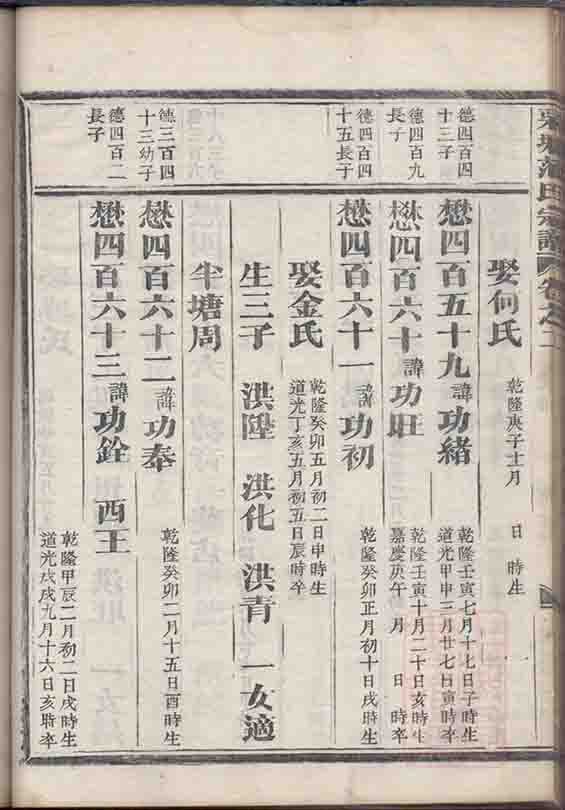 范氏宗譜 卷之二
娶何氏 乾隆庚子十二月 日 時生
德四百四十三子
懋四百五十九 諱 功緒 乾隆壬寅七月十七日子時生 道光甲申三月廿七日寅時卒
德四百九長子
懋四百六十 諱 功旺 乾隆壬寅十月二十日亥時生 嘉慶庚午 月 日 時卒
德四百四十五長子
懋四百六十一 諱 功初 乾隆癸卯正月初十日戌時生
娶金氏 乾隆癸卯五月初二日申時生 道光丁亥五月初五日辰時卒
生三子 洪陞 洪化 洪青 一女適
半塘周
德三百四十三幼子
懋四百六十二 諱 功奉 乾隆癸卯二月十五日酉時生
德四百二長子
懋四百六十三 諱 功銓 西王 乾隆甲辰二月初二日戌時生 道光戊戌九月十六日亥時卒